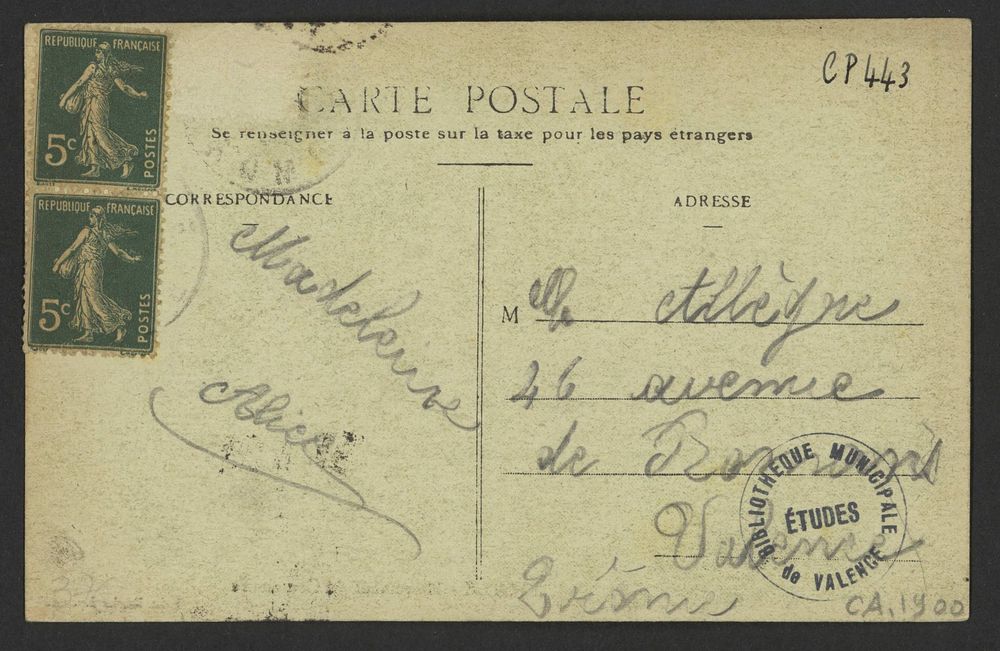 REPUBLIQUE FRANÇAISE
5c
POSTES
REPUBLIQUE FRANÇAISE
5c
POSTES
CP443
CARTE POSTALE
Se renseigner à la poste sur la taxe pour les pays étrangers
CORRESPONDANCE
Madeleine
Alice
ADRESSE
M Me Allègre
46 avenue
de Romans
Valence
Drôme
BIBLIOTHEQUE MUNICIPALE
ÉTUDES
de VALENCE
CA. 1900